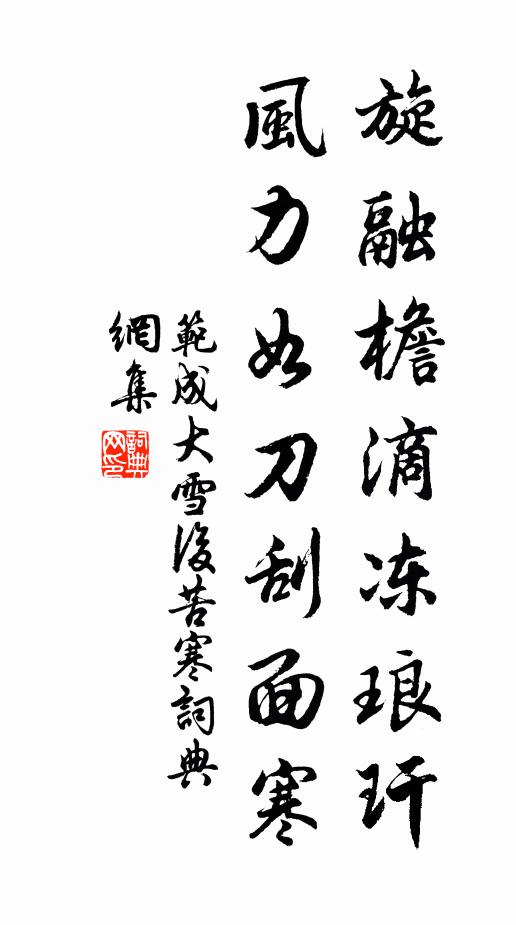 旋融檐滴冻琅玕
風力如刀刮面寒
範成大雪後苦寒詞典
網集
詞典網印